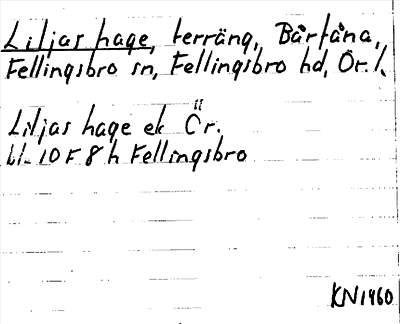 Liljas hage, terräng, Bårtåna,
Fellingsbro sn, Fellingsbro hd, Ör. l.
Liljas hage ek Ör.
bl. 10 F 8 h Fellingsbro
KN1960